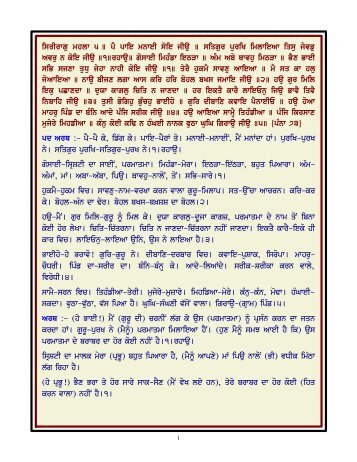 ਸਿਰੀਰਾਗੁ ਮਹਲਾ ੫ ॥ ਪੈ ਪਾਇ ਮਨਾਈ ਸੋਇ ਜੀਉ ॥ ਸਤਿਗੁਰ ਪੁਰਖਿ ਮਿਲਾਇਆ ਤਿਸੁ ਜੇਵਡੁ
ਅਵਰੁ ਨ ਕੋਇ ਜੀਉ ॥੧॥ਰਹਾਉ॥ ਗੋਸਾਈ ਮਿਹੰਡਾ ਇਠੜਾ ॥ ਅੰਮ ਅਬੇ ਥਾਵਹੁ ਮਿਠੜਾ ॥ ਭੈਣ ਭਾਈ
ਸਭਿ ਸਜਣਾ ਤੁਧੁ ਜੇਹਾ ਨਾਹੀ ਕੋਇ ਜੀਉ ॥੧॥ ਤੇਰੈ ਹੁਕਮੇ ਸਾਵਣੁ ਆਇਆ ॥ ਮੈ ਸਤ ਕਾ ਹਲੁ
ਜੋਆਇਆ ॥ ਨਾਉ ਬੀਜਣ ਲਗਾ ਆਸ ਕਰਿ ਹਰਿ ਬੋਹਲ ਬਖਸ ਜਮਾਇ ਜੀਉ ॥੨॥ ਹਉ ਗੁਰ ਮਿਲਿ
ਇਕੁ ਪਛਾਣਦਾ ॥ ਦੁਯਾ ਕਾਗਲੁ ਚਿਤਿ ਨ ਜਾਣਦਾ ॥ ਹਰਿ ਇਕਤੈ ਕਾਰੈ ਲਾਇਓਨੁ ਜਿਉ ਭਾਵੈ ਤਿਵੈ
ਨਿਬਾਹਿ ਜੀਉ ॥੩॥ ਤੁਸੀ ਭੋਗਿਹੁ ਭੁੰਚਹੁ ਭਾਈਹੋ ॥ ਗੁਰਿ ਦੀਬਾਣਿ ਕਵਾਇ ਪੈਨਾਈਓ ॥ ਹਉ ਹੋਆ
ਮਾਹਰੁ ਪਿੰਡ ਦਾ ਬੰਨਿ ਆਦੇ ਪੰਜਿ ਸਰੀਕ ਜੀਉ ॥੪॥ ਹਉ ਆਇਆ ਸਾਮ੍ਹੈ ਤਿਹੰਡੀਆ ॥ ਪੰਜਿ ਕਿਰਸਾਣ
ਮੁਜੇਰੇ ਮਿਹਡਿਆ ॥ ਕੰਨੁ ਕੋਈ ਕਢਿ ਨ ਹੰਘਈ ਨਾਨਕ ਵੁਠਾ ਘੁਘਿ ਗਿਰਾਉ ਜੀਉ ॥੫॥ (ਪੰਨਾ ੭੩)
ਪਦ ਅਰਥ :- ਪੈ-ਪੈ ਕੇ, ਡਿੱਗ ਕੇ। ਪਾਇ-ਪੈਰਾਂ ਤੇ। ਮਨਾਈ-ਮਨਾਈਂ, ਮੈਂ ਮਨਾਂਦਾ ਹਾਂ। ਪੁਰਖਿ-ਪੁਰਖ
ਨੇ। ਸਤਿਗੁਰ ਪੁਰਖਿ-ਸਤਿਗੁਰ-ਪੁਰਖ ਨੇ।੧।ਰਹਾਉ।
ਗੋਸਾਈ-ਸ੍ਰਿਸ਼ਟੀ ਦਾ ਸਾਈਂ, ਪਰਮਾਤਮਾ। ਮਿਹੰਡਾ-ਮੇਰਾ। ਇਠੜਾ-ਇੱਠੜਾ, ਬਹੁਤ ਪਿਆਰਾ। ਅੰਮ-
ਅੰਮਾਂ, ਮਾਂ। ਅਬਾ-ਅੱਬਾ, ਪਿਉ। ਥਾਵਹੁ-ਨਾਲੋਂ, ਤੋਂ। ਸਭਿ-ਸਾਰੇ।੧।
ਹੁਕਮੈ-ਹੁਕਮ ਵਿਚ। ਸਾਵਣੁ-ਨਾਮ-ਵਰਖਾ ਕਰਨ ਵਾਲਾ ਗੁਰੂ-ਮਿਲਾਪ। ਸਤ-ਉੱਚਾ ਆਚਰਨ। ਕਰਿ-ਕਰ
ਕੇ। ਬੋਹਲ-ਅੰਨ ਦਾ ਢੇਰ। ਬੋਹਲ ਬਖਸ-ਬਖ਼ਸ਼ਸ਼ ਦਾ ਬੋਹਲ।੨।
ਹਉ-ਮੈਂ। ਗੁਰ ਮਿਲਿ-ਗੁਰੂ ਨੂੰ ਮਿਲ ਕੇ। ਦੁਯਾ ਕਾਗਲੁ-ਦੂਜਾ ਕਾਗਜ਼, ਪਰਮਾਤਮਾ ਦੇ ਨਾਮ ਤੋਂ ਬਿਨਾ
ਕੋਈ ਹੋਰ ਲੇਖਾ। ਚਿਤਿ-ਚਿੱਤਰਨਾ। ਚਿਤਿ ਨ ਜਾਣਦਾ-ਚਿੱਤਰਨਾ ਨਹੀਂ ਜਾਣਦਾ। ਇਕਤੈ ਕਾਰੈ-ਇਕੋ ਹੀ
ਕਾਰ ਵਿਚ। ਲਾਇਓਨੁ-ਲਾਇਆ ਉਨਿ, ਉਸ ਨੇ ਲਾਇਆ ਹੈ।੩।
ਭਾਈਹੋ-ਹੇ ਭਰਾਵੋ! ਗੁਰਿ-ਗੁਰੂ ਨੇ। ਦੀਬਾਣਿ-ਦਰਬਾਰ ਵਿਚ। ਕਵਾਇ-ਪੁਸ਼ਾਕ, ਸਿਰੋਪਾ। ਮਾਹਰੁ-
ਚੌਧਰੀ। ਪਿੰਡ ਦਾ-ਸਰੀਰ ਦਾ। ਬੰਨਿ-ਬੰਨ੍ਹ ਕੇ। ਆਦੇ-ਲਿਆਂਦੇ। ਸਰੀਕ-ਸ਼ਰੀਕਾ ਕਰਨ ਵਾਲੇ,
ਵਿਰੋਧੀ।੪।
ਸਾਮੈ-ਸਰਨ ਵਿਚ। ਤਿਹੰਡੀਆ-ਤੇਰੀ। ਮੁਜੇਰੇ-ਮੁਜ਼ਾਰੇ। ਮਿਹਡਿਆ-ਮੇਰੇ। ਕੰਨੁ-ਕੰਨ, ਮੋਢਾ। ਹੰਘਈ-
ਸਕਦਾ। ਵੁਠਾ-ਵੁੱਠਾ, ਵੱਸ ਪਿਆ ਹੈ। ਘੁਘਿ-ਸੰਘਣੀ ਵੱਸੋਂ ਵਾਲਾ। ਗਿਰਾਉ-(ਗ੍ਰਾਮ) ਪਿੰਡ।੫।
ਅਰਥ :- (ਹੇ ਭਾਈ!) ਮੈਂ (ਗੁਰੂ ਦੀ) ਚਰਨੀਂ ਲੱਗ ਕੇ ਉਸ (ਪਰਮਾਤਮਾ) ਨੂੰ ਪ੍ਰਸੰਨ ਕਰਨ ਦਾ ਜਤਨ
ਕਰਦਾ ਹਾਂ। ਗੁਰੂ-ਪੁਰਖ ਨੇ (ਮੈਨੂੰ) ਪਰਮਾਤਮਾ ਮਿਲਾਇਆ ਹੈਂ। (ਹੁਣ ਮੈਨੂੰ ਸਮਝ ਆਈ ਹੈ ਕਿ) ਉਸ
ਪਰਮਾਤਮਾ ਦੇ ਬਰਾਬਰ ਦਾ ਹੋਰ ਕੋਈ ਨਹੀਂ ਹੈ।੧।ਰਹਾਉ।
ਸ੍ਰਿਸ਼ਟੀ ਦਾ ਮਾਲਕ ਮੇਰਾ (ਪ੍ਰਭੂ) ਬਹੁਤ ਪਿਆਰਾ ਹੈ, (ਮੈਨੂੰ ਆਪਣੇ) ਮਾਂ ਪਿਉ ਨਾਲੋਂ (ਭੀ) ਵਧੀਕ ਮਿੱਠਾ
ਲੱਗ ਰਿਹਾ ਹੈ।
(ਹੇ ਪ੍ਰਭੂ!) ਭੈਣ ਭਰਾ ਤੇ ਹੋਰ ਸਾਰੇ ਸਾਕ-ਸੈਣ (ਮੈਂ ਵੇਖ ਲਏ ਹਨ), ਤੇਰੇ ਬਰਾਬਰ ਦਾ ਹੋਰ ਕੋਈ (ਹਿਤ
ਕਰਨ ਵਾਲਾ) ਨਹੀਂ ਹੈ।੧।
1